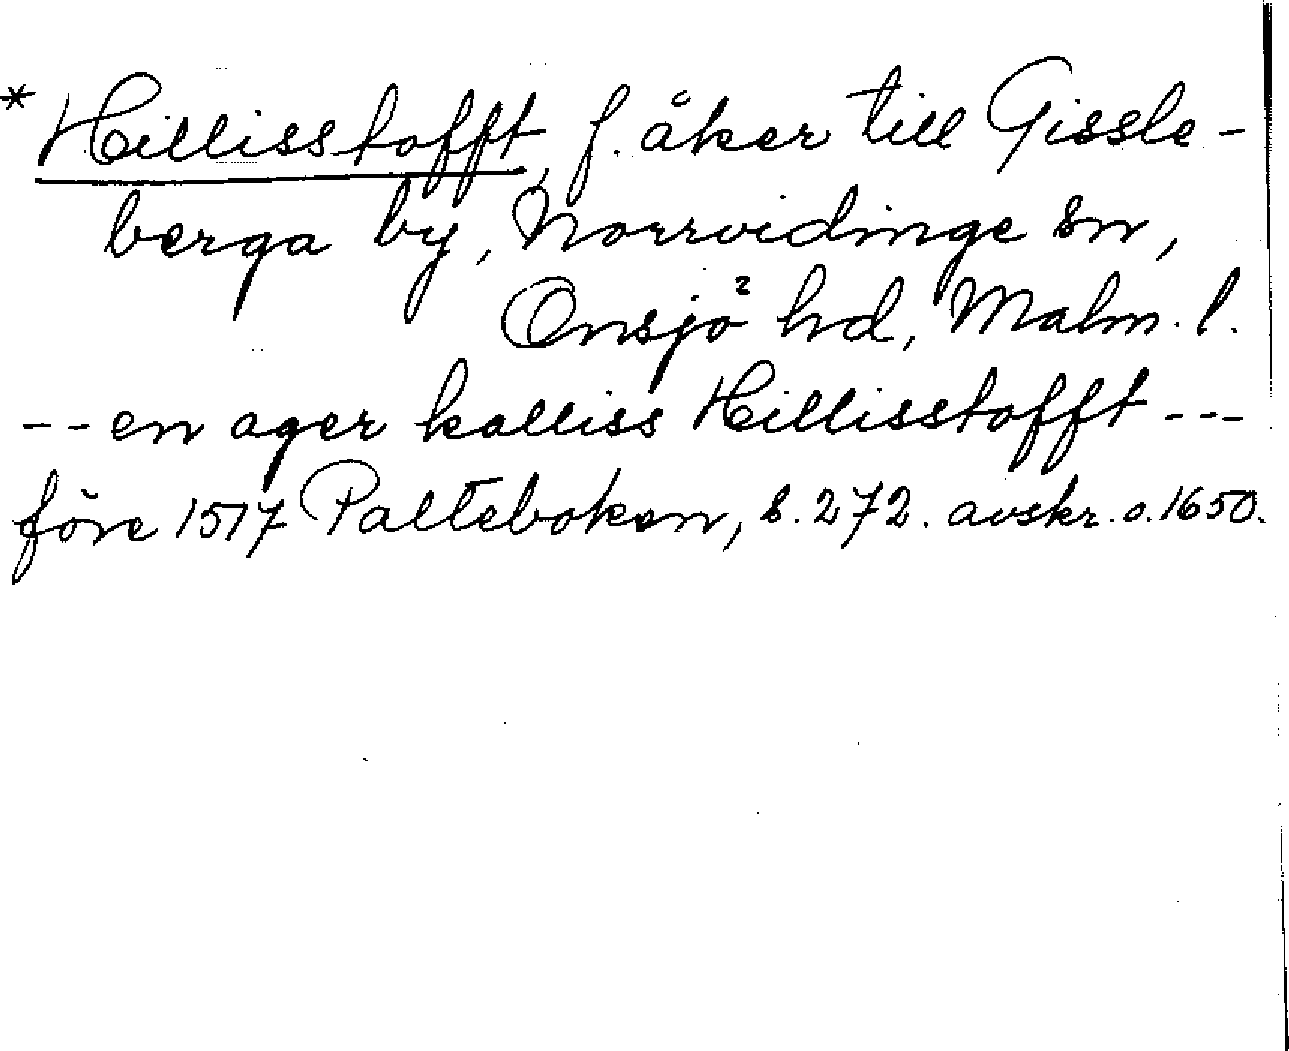 * Hillisstofft, f. åker till Gissle-
berga by, Norrvidinge sn,
Onsjö hd, Malm. l.
-- en ager kalliss Hillisstofft ---
före 1517 Palteboken, s. 272. avskr. o. 1650.